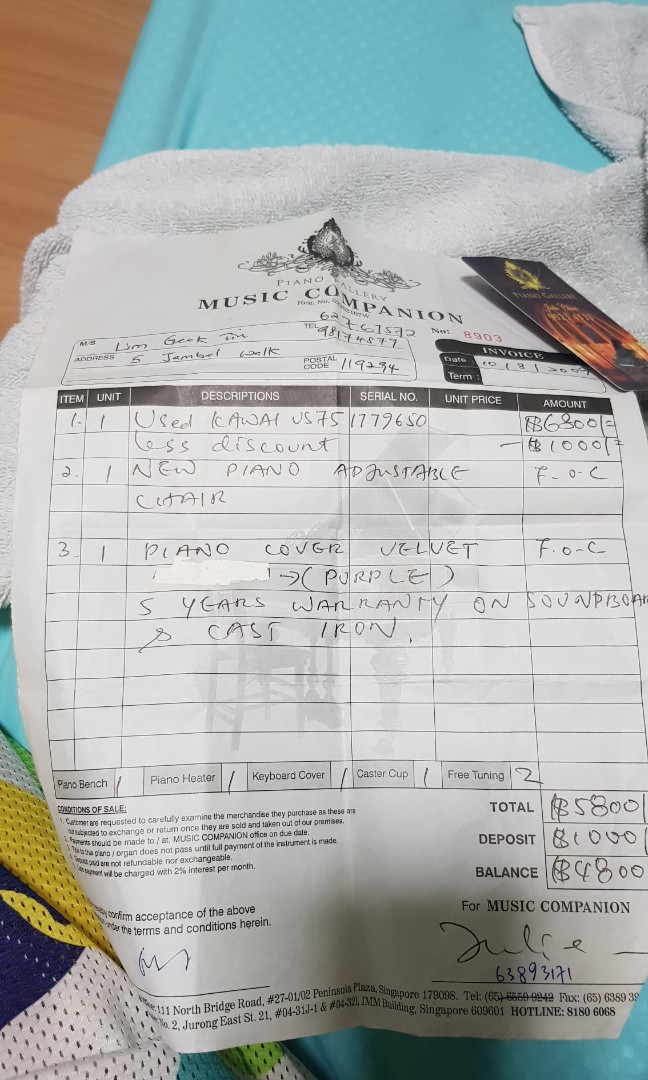 PIANO GALLERY
MUSIC COMPANION
Reg. No.
M/S Lim Geok
TEL 62761572
98174877
No: 8903
ADDRESS 5 Jambol walk
POSTAL CODE 119294
INVOICE
Date 10/8/2009
Term:
PIANO GALLERY
ITEM UNIT DESCRIPTIONS SERIAL NO. UNIT PRICE AMOUNT
1. 1 Used KAWAI US75 1779650 $6800/=
less discount - $1000/=
2. 1 NEW PIANO ADJUSTABLE F.O.C
CHAIR
3. 1 PIANO COVER VELVET F.O.C
→(PURPLE)
5 YEARS WARRANTY ON SOUNDBOAR
& CAST IRON.
Piano Bench / Piano Heater / Keyboard Cover / Caster Cup / Free Tuning 2
CONDITIONS OF SALE:
1. Customer are requested to carefully examine the merchandise they purchase as these are
not subjected to exchange or return once they are sold and taken out of our premises.
2. Payments should be made to / at, MUSIC COMPANION office on due date.
3. Title to this piano / organ does not pass until full payment of the instrument is made.
4. Deposits paid are not refundable nor exchangeable.
payment will be charged with 2% interest per month.
TOTAL $5800/
DEPOSIT $1000/
BALANCE $4800
confirm acceptance of the above
under the terms and conditions herein.
For MUSIC COMPANION
Julie
63893171
111 North Bridge Road, #27-01/02 Peninsula Plaza, Singapore 179098. Tel: (65) 6559 9242 Fax: (65) 6389 39
No. 2, Jurong East St. 21, #04-31J-1 & #04-32I, IMM Building, Singapore 609601 HOTLINE: 8180 6068